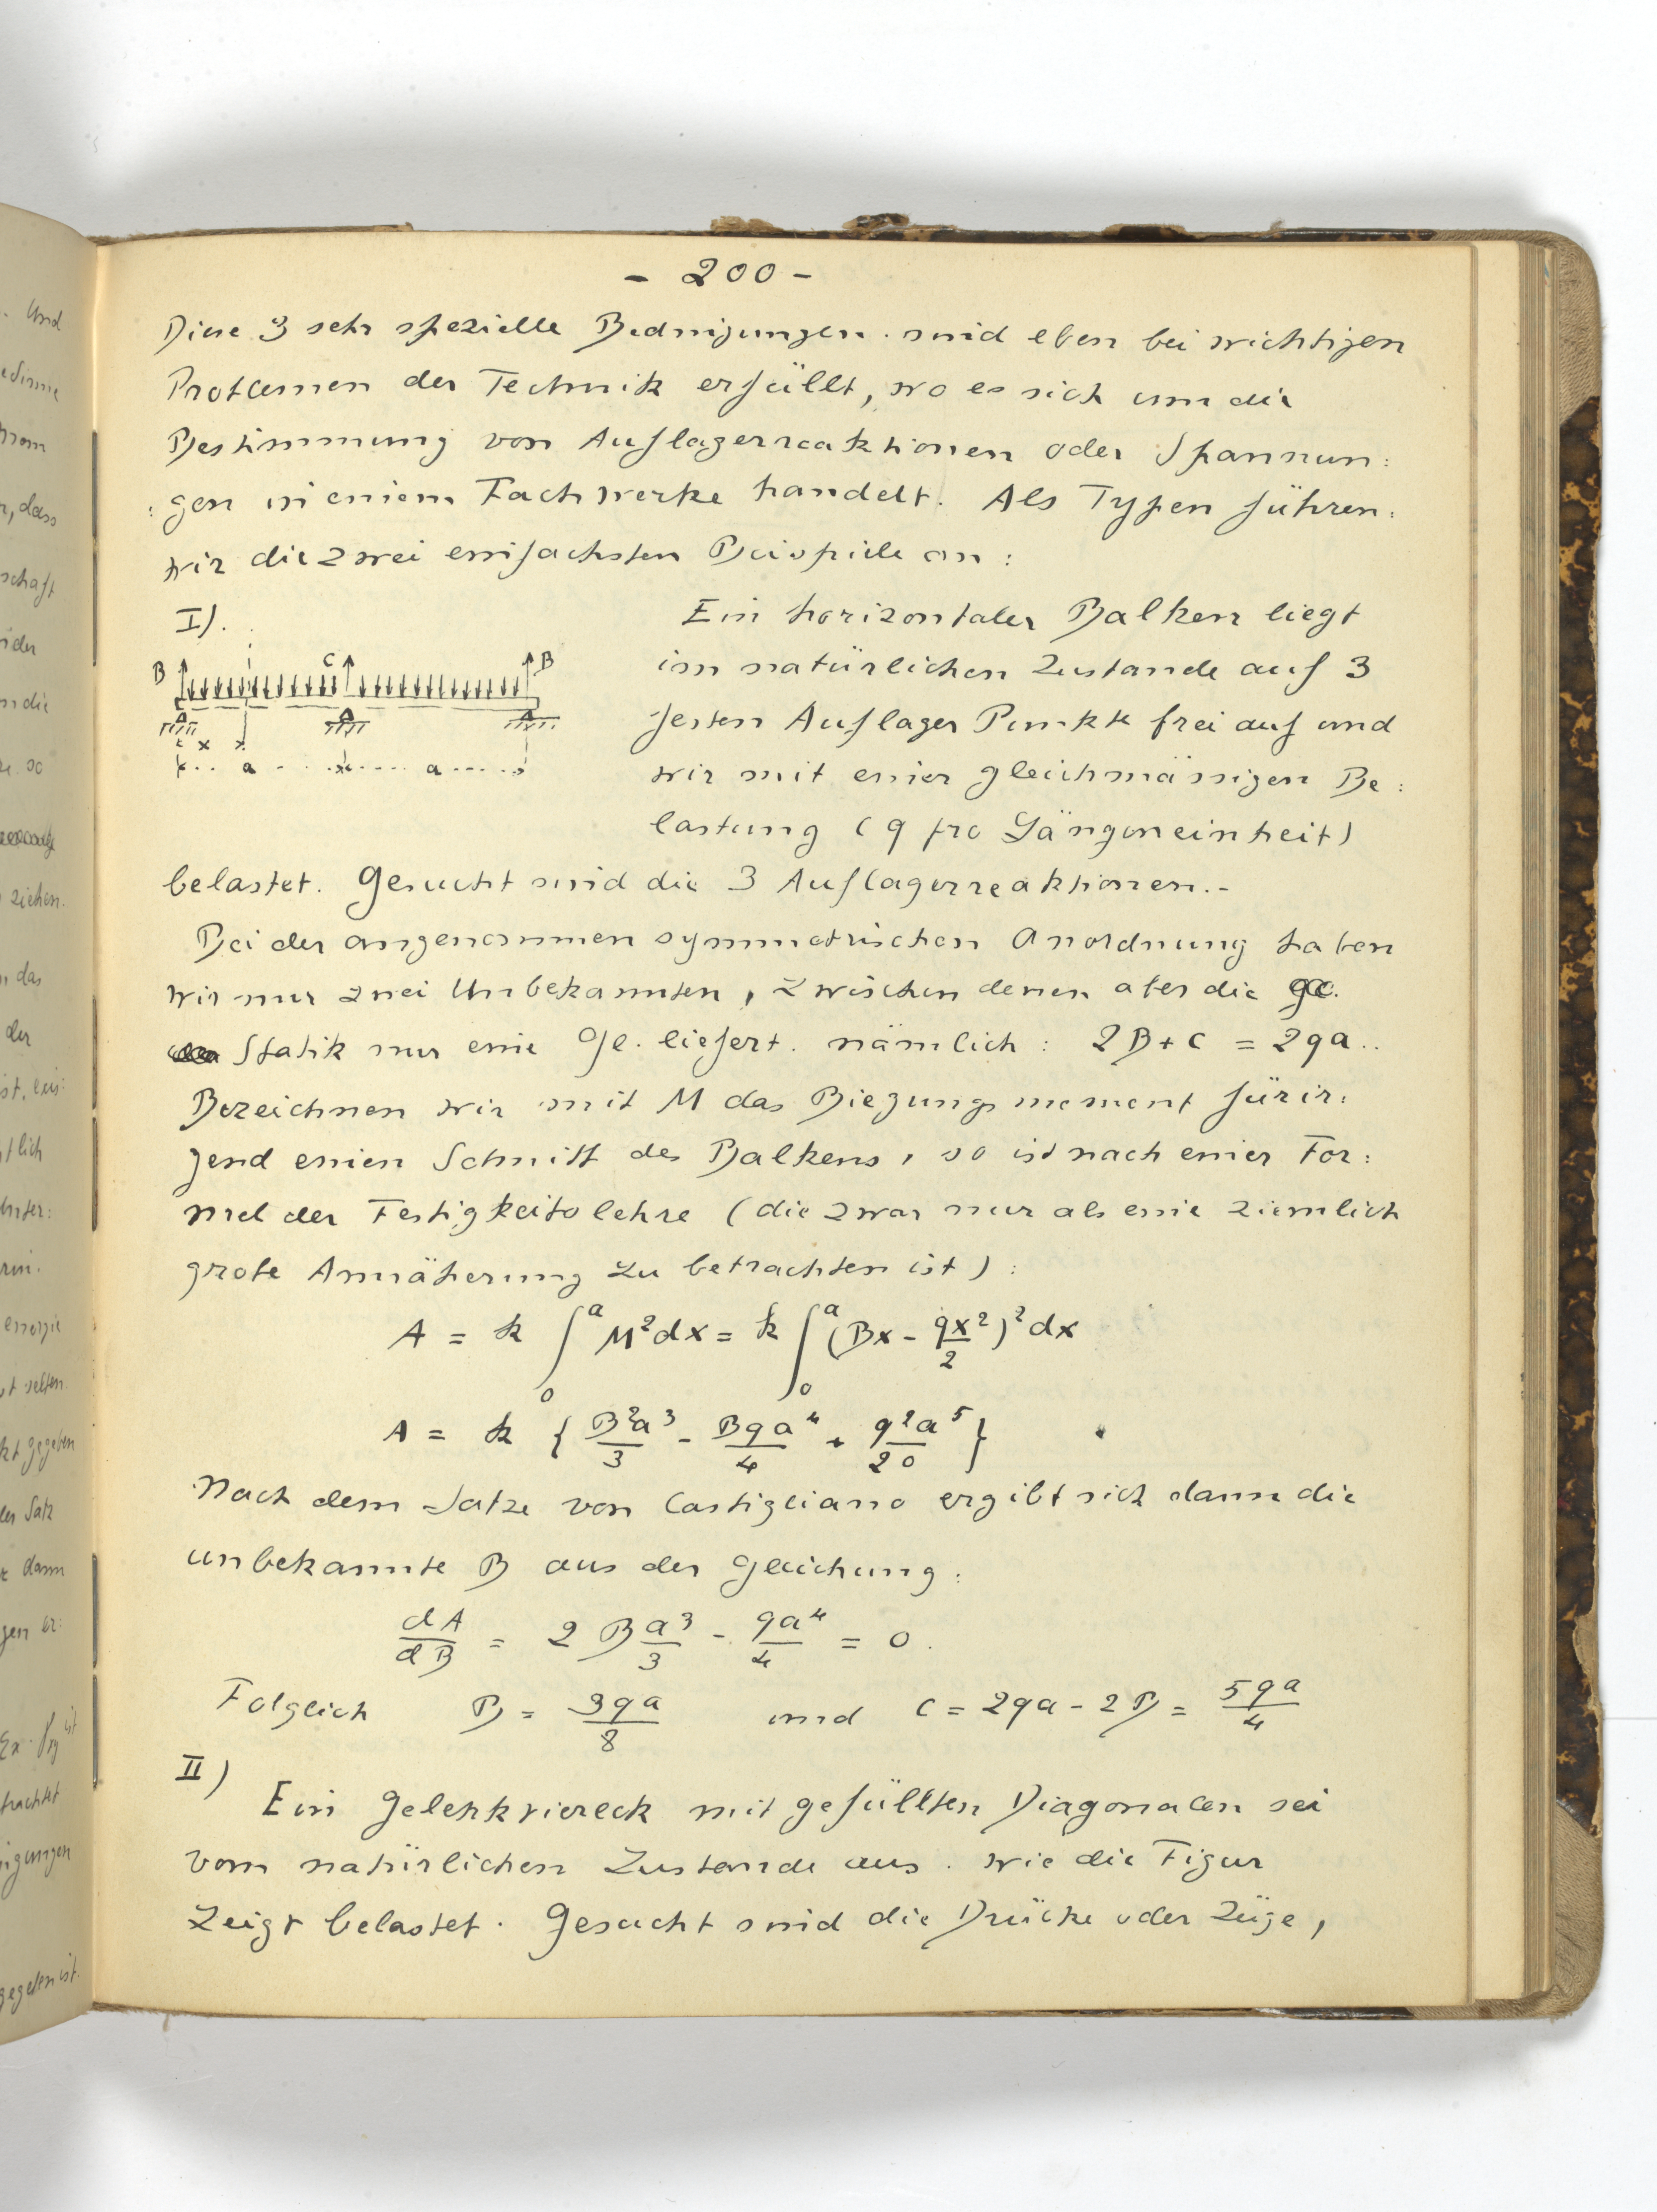 - 200 -
Diese 3 sehr spezielle Bedingungen sind eben bei wichtigen
Problemen der Technik erfüllt, wo es sich um die
Bestimmung von Auflagerreaktionen oder Spannun:
: gen in einem Fachwerke handelt. Als Typen führen
wir die zwei einfachsten Beispiele an :
I).
B C B
A A A
x
a a
Ein horizontaler Balken liegt
im natürlichen Zustande auf 3
festen Auflager Punkte frei auf und
wir mit einer gleichmässigen Be :
lastung (q pro Längeneinheit)
belastet. Gesucht sind die 3 Auflagerreaktionen.-
Bei der angenommen symmetrischen Anordnung haben
wir nur zwei Unbekannten, zwischen denen aber die
Statik nur eine Gl. liefert. nämlich : 2B + C = 2qa..
Bezeichnen wir mit M das Biegungsmoment für ir:
gend einen Schnitt des Balkens, so ist nach einer For :
mel der Festigkeitslehre (die zwar nur als eine ziemlich
grobe Annäherung zu betrachten ist) :
A = k ∫₀ᵃ M²dx = k ∫₀ᵃ (Bx - qx²/2)² dx
A = k { B²a³/3 - Bqa⁴/4 + q²a⁵/20 }
Nach dem Satze von Castigliano ergibt sich dann die
unbekannte B aus der Gleichung :
dA/dB = 2 B a³/3 - qa⁴/4 = 0.
Folglich B = 3qa/8 und C = 2qa - 2B = 5qa/4
II)
Ein Gelenkviereck mit gefüllten Diagonalen sei
vom natürlichen Zustande aus. wie die Figur
Zeigt belastet. Gesucht sind die Drücke oder Züge,